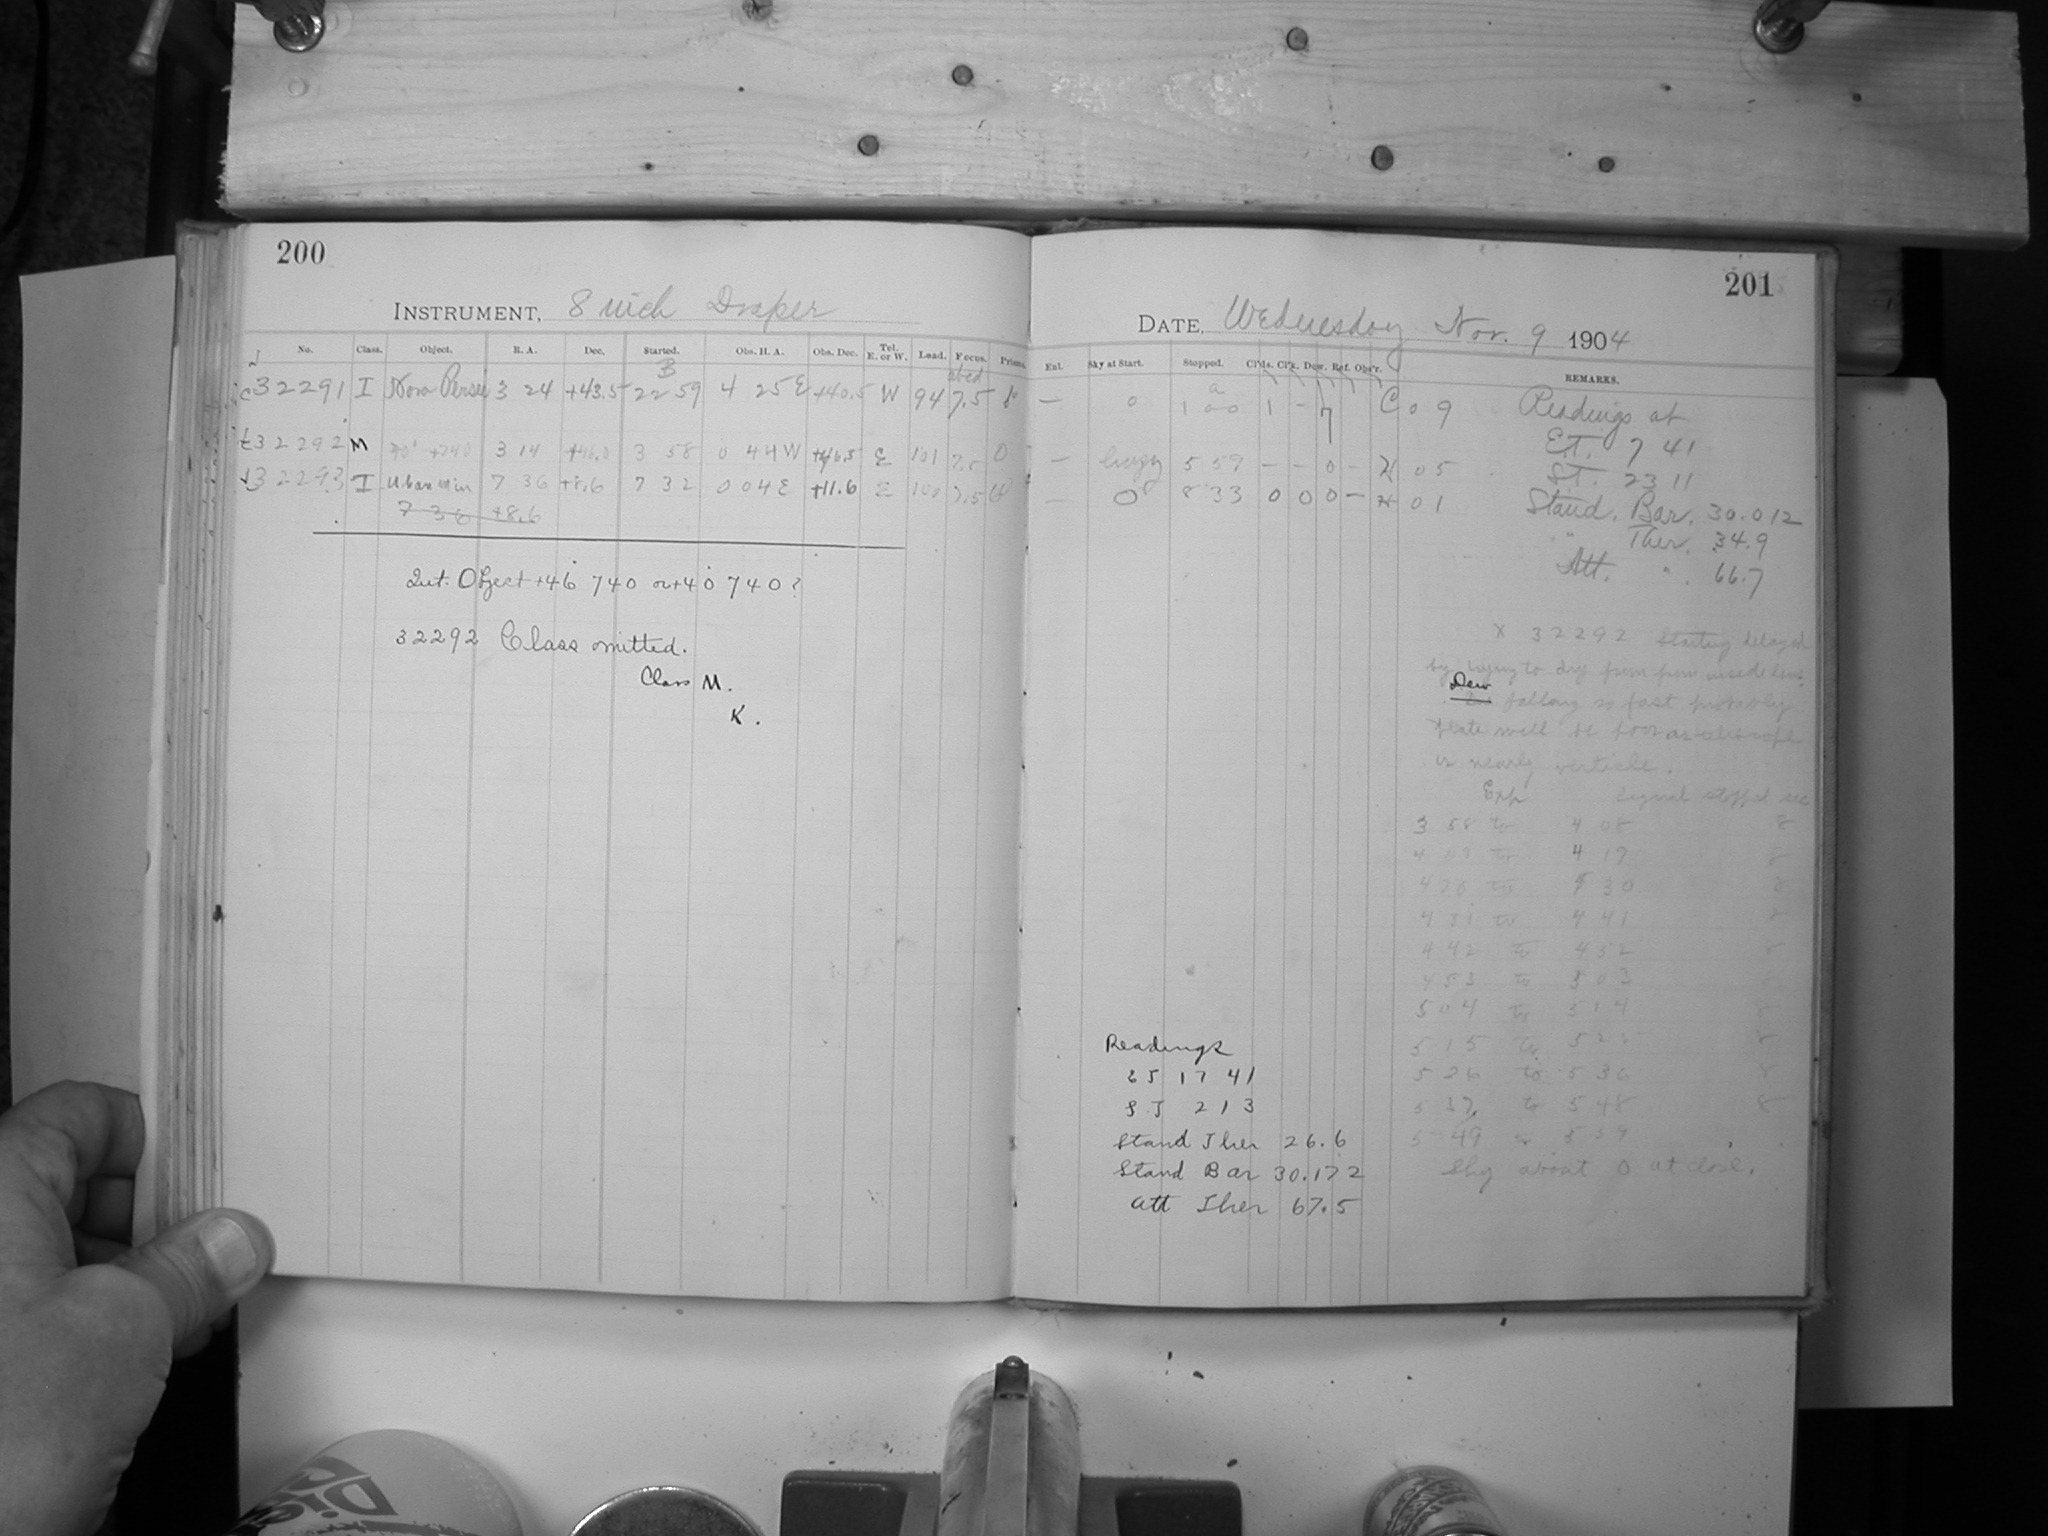 200
INSTRUMENT, 8 inch Draper
No. Class. Object. R. A. Dec. Started. Obs. H. A. Obs. Dec. Tel. E. or W. Load. Focus.
B
32291 I Nova Persei 3 24 +43.5 22 59 4 25 E +40.5 W 94 7.5
32292 M +740 3 14 +46.0 3 58 0 44 W +46.5 E 101 7.5 0
32293 I U Can Min 7 36 +8.6 7 32 0 04 E +11.6 E 100 7.5
7 36 +8.6
Qut. Object +46 740 or +40 740?
32292 Class omitted.
Class M.
K.
201
DATE, Wednesday Nov. 9 1904
Ent. Sky at Start. Stopped. Cl'ds. Cl'k. Dew. Ref. Obs'r. REMARKS.
— 0 1 00 1 - 7 C 0 9
— hazy 5 59 - - 0 - H 05
— 0 8 33 0 0 0 — H 01
Readings at
E.T. 7 41
S.T. 23 11
Stand. Bar. 30.012
" Ther. 34.9
Att. " 66.7
X 32292 Starting delayed
by trying to dry prism
Dew falling so fast probably
plate will be poor as telescope
is nearly verticle.
Exp Signal stopped sec
3 58 to 4 08 8
4 09 to 4 19 8
4 20 to 4 30 8
4 31 to 4 41 8
4 42 to 4 52 8
4 53 to 5 03
5 04 to 5 14 8
5 15 to 5 25 8
5 26 to 5 36 8
5 37 to 5 48 8
5 49 to 5 59
Sky about 0 at close.
Readings
ET 17 41
ST 2 13
Stand Ther 26.6
Stand Bar 30.172
Att Ther 67.5